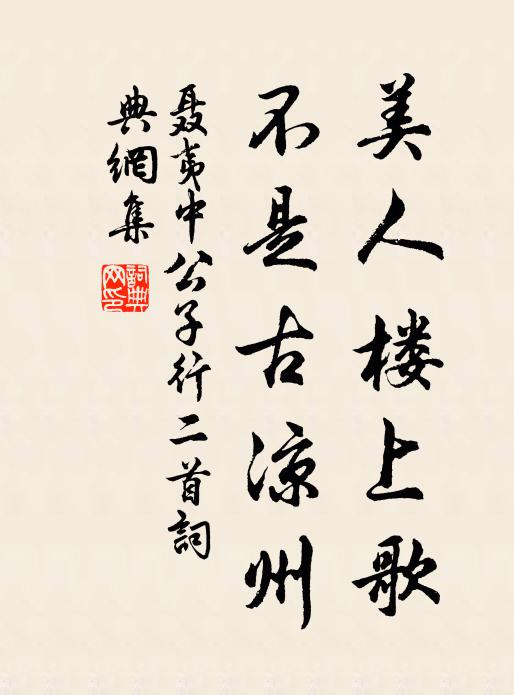 美人楼上歌
不是古凉州
聂夷中公子行二首詞
典網集
詞典網印